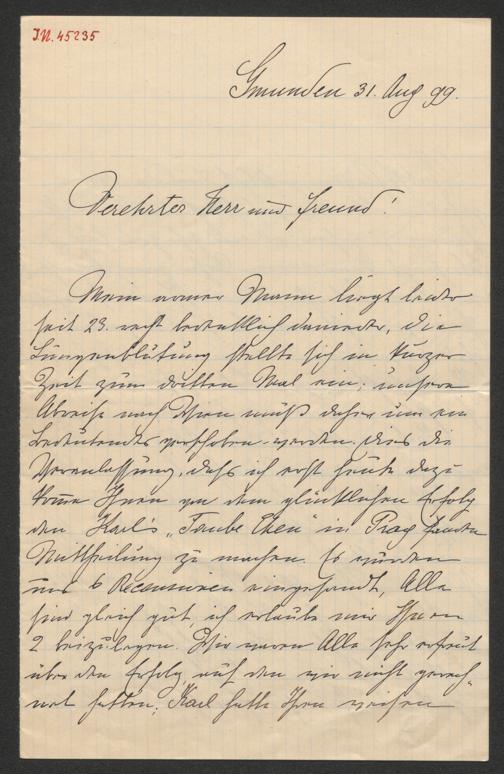 I.N. 45235
Gmunden 31. Aug 99.
Verehrter Herr und Freund!
Mein armer Mann liegt leider
seit 23. recht bedenklich danieder, die
Lungenblutung stellte sich in kurzer
Zeit zum dritten Mal ein; unsere
Abreise nach Wien muß daher um ein
Bedeutendes verschoben werden, dies die
Veranlassung, daß ich erst heute dazu
komme Ihnen von dem glücklichen Erfolg
den Karl's „Taube Eken" in Prag fanden
Mittheilung zu machen. Es wurden
uns 6 Recensionen eingesandt, Alle
sind gleich gut, ich erlaube mir Ihnen
2 beizulegen. Wir waren Alle sehr erfreut
über den Erfolg, auf den wir nicht gerech-
net hatten; Karl hatte Ihren weisen